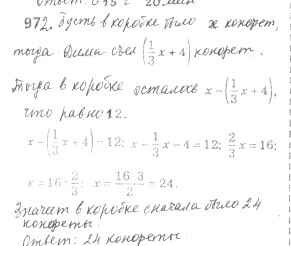 Ответ: 0,15 г 20 мин
972. Пусть в коробке было x конфет,
тогда Дима съел (1/3 x + 4) конфет.
Тогда в коробке осталось x − (1/3 x + 4),
что равно 12.
x − (1/3 x + 4) = 12; x − 1/3 x − 4 = 12; 2/3 x = 16;
x = 16 : 2/3; x = 16·3/2 = 24.
Значит в коробке сначала было 24
конфеты.
Ответ: 24 конфеты